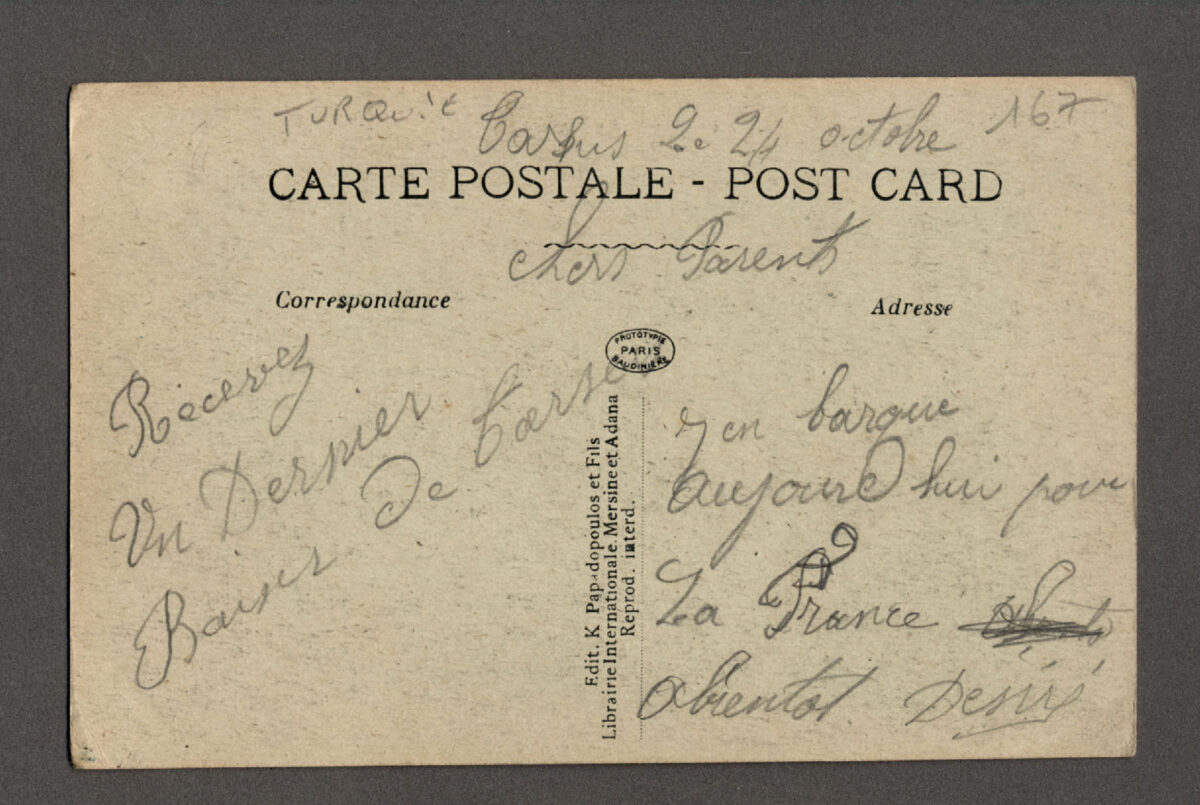 TURQuie
Tarsus Le 24 octobre
167
CARTE POSTALE - POST CARD
chers Parents
Correspondance
Adresse
Recevez
Un Dernier
Baiser De Tarse
PROTOTYPIE
PARIS
BAUDINIÈRE
Edit. K Papadopoulos et Fils
Librairie Internationale Mersine et Adana
Reprod. interd.
J en barque
aujourd hui pour
La France
abientot Desiré